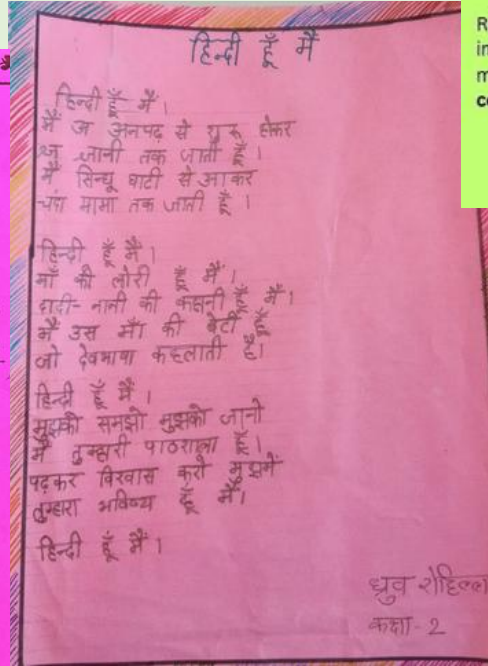 हिन्दी हूँ मैं
हिन्दी हूँ मैं।
मैं अ अनपढ़ से शुरू होकर
ज्ञ ज्ञानी तक जाती हूँ।
मैं सिन्धू घाटी से आकर
चंदा मामा तक जाती हूँ।
हिन्दी हूँ मैं।
माँ की लोरी हूँ मैं।
दादी-नानी की कहानी हूँ मैं।
मैं उस माँ की बेटी हूँ
जो देवभाषा कहलाती है।
हिन्दी हूँ मैं।
मुझको समझो मुझको जानो
मैं तुम्हारी पाठशाला हूँ।
पढ़कर विश्वास करो मुझमें
तुम्हारा भविष्य हूँ मैं।
हिन्दी हूँ मैं।
ध्रुव रोहिल्ला
कक्षा-2